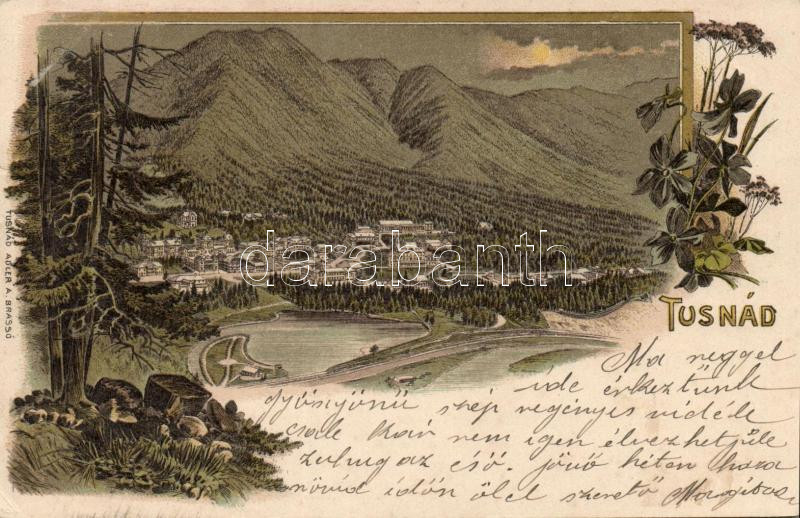 TUSNÁD
TUSNÁD ADLER A. BRASSÓ
darabanth
Ma reggel
ide érkeztünk
gyönyörü szép regényes vidéke
csak kár nem igen élvezhetjük
zuhog az eső. jövő héten haza
rövid időn ölel szerető